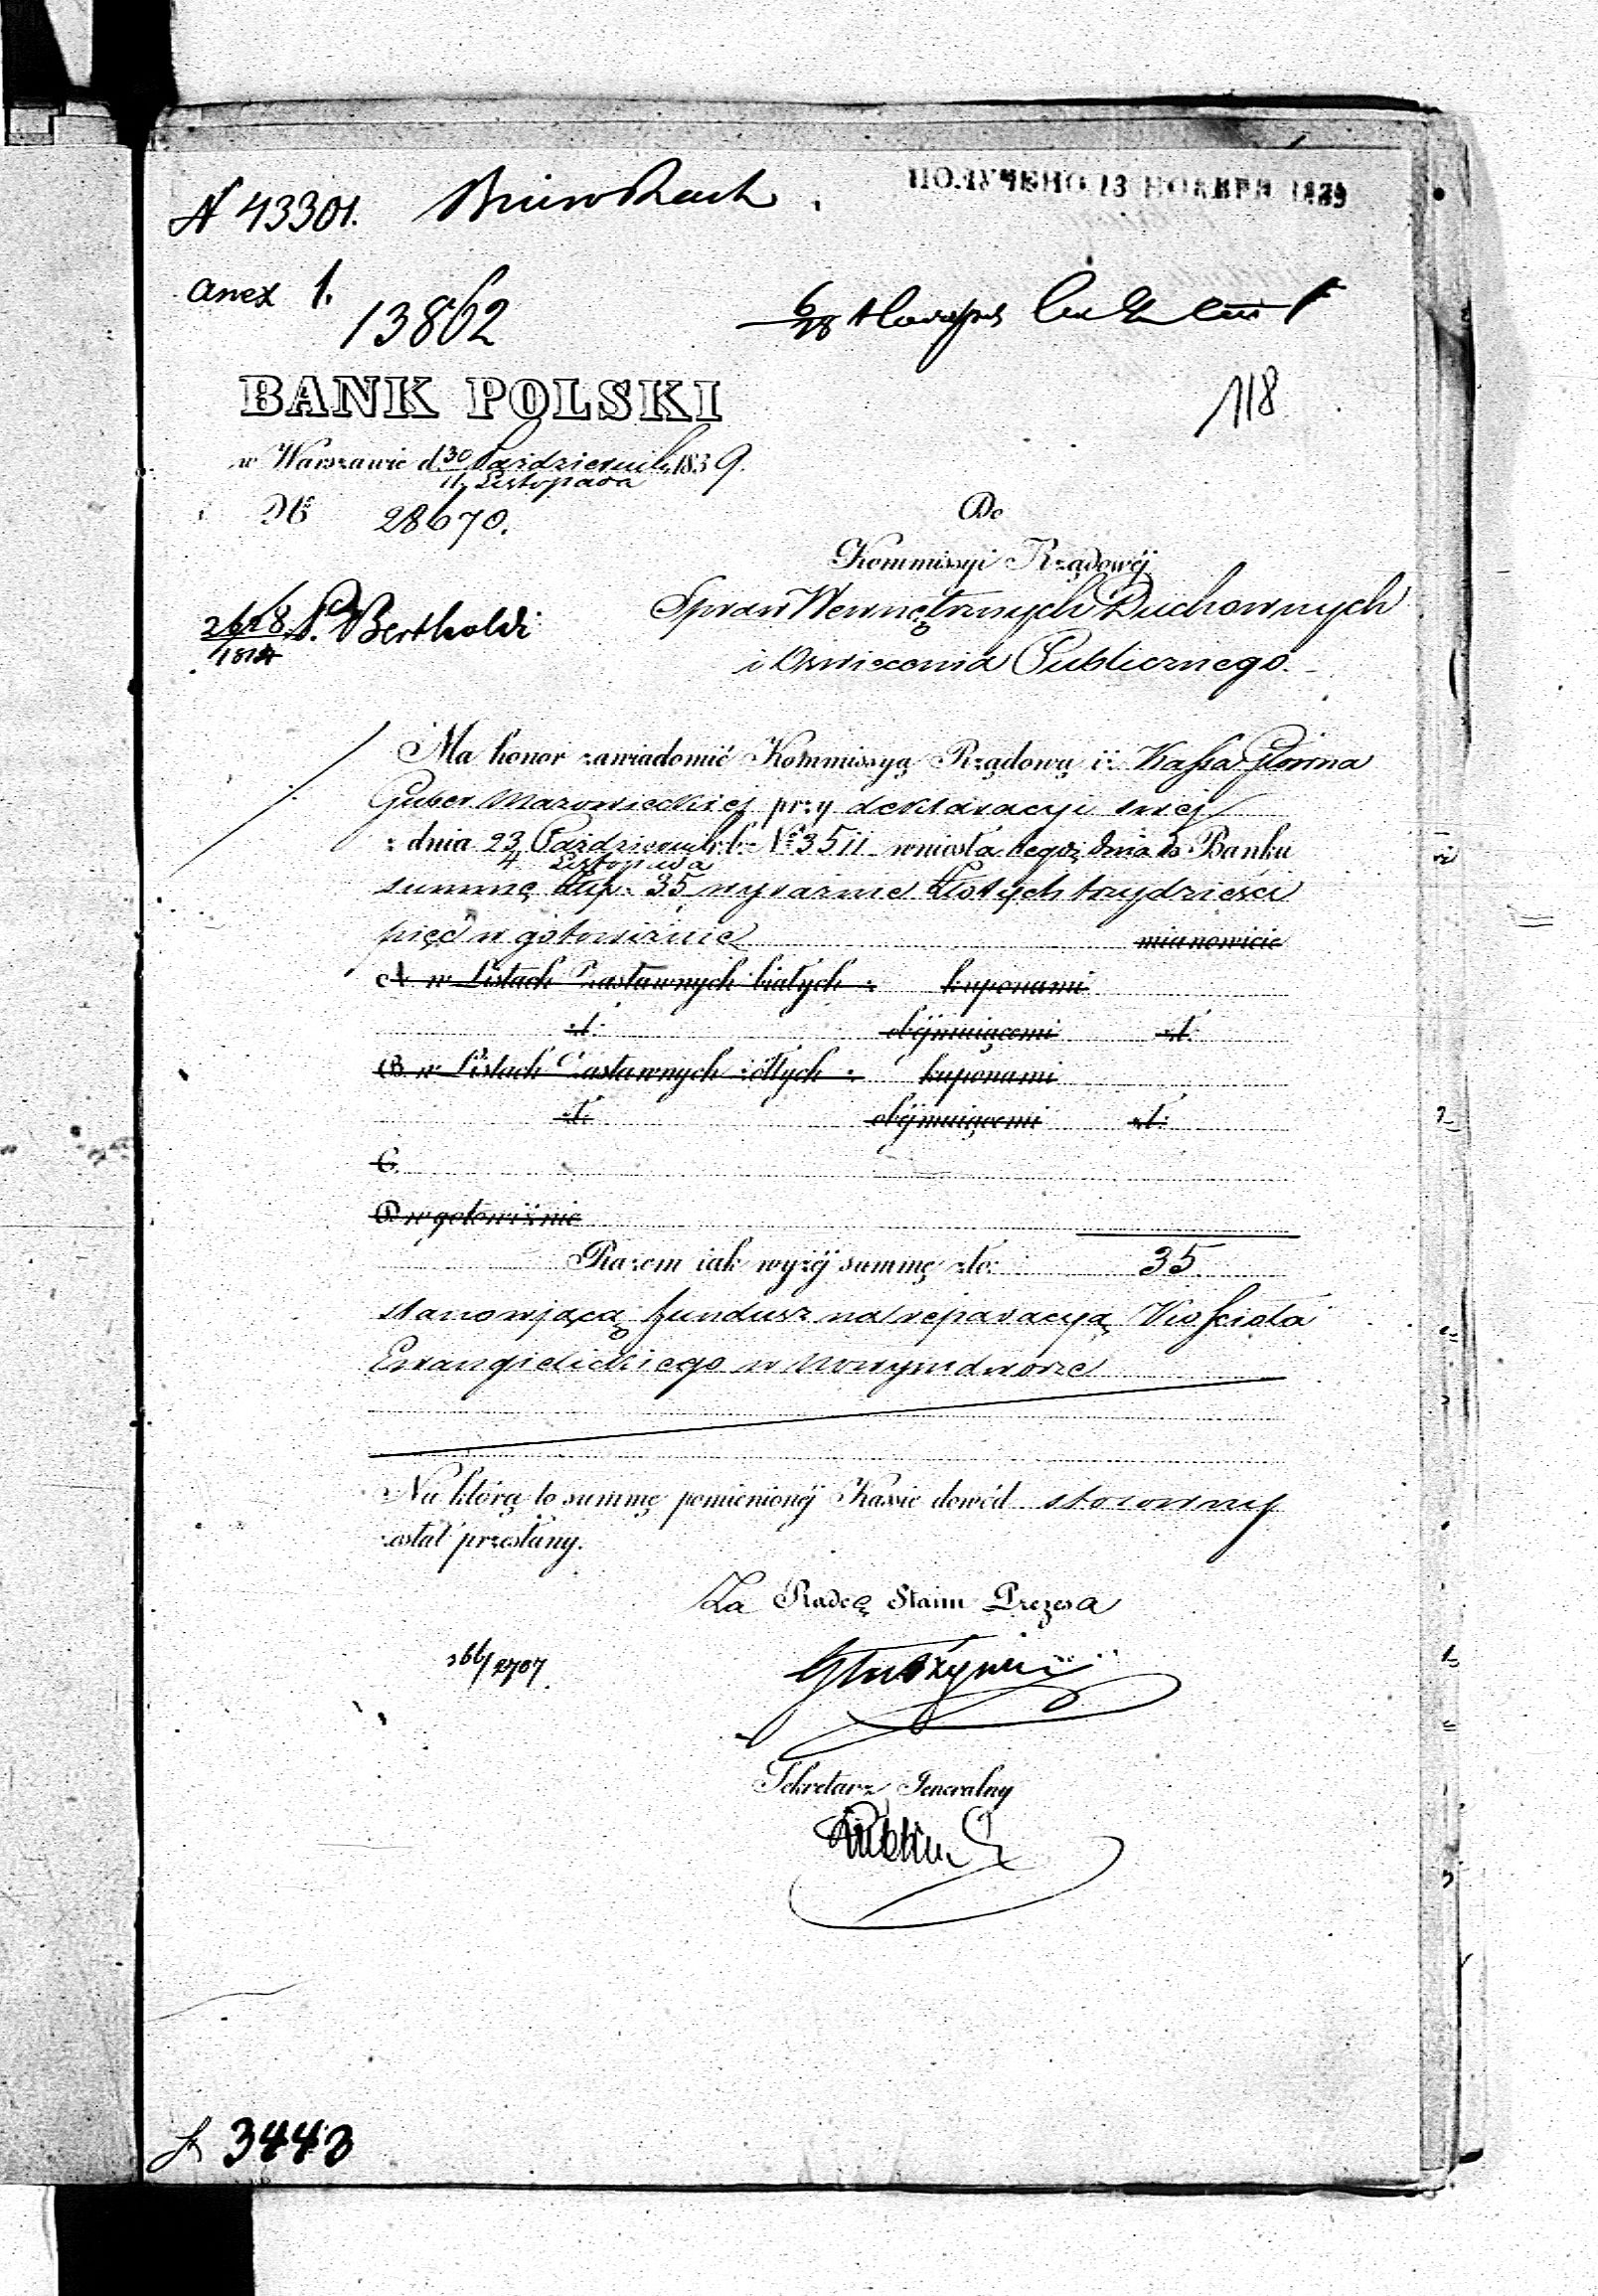 N 43301.
ПОЛУЧЕНО 13 НОЯБРЯ 1839
anex 1.
13862
118
BANK POLSKI
w Warszawie d. 30 Październik 1839.
11 Listopada
№ 28670.
Do
Kommissyi Rządowéj
Spraw Wewnętrznych Duchownych
i Oswiecenia Publicznego.
P. Bertholdi
Ma honor zawiadomić Kommissyą Rządową iż Kassa Główna
Guber. Mazowieckiej przy deklaracyi swej
z dnia 23 Październik r. b. № 3511 wniosła tegoż dnia do Banku
4 Listopada
summę złtp. 35 wyraznie Złotych trzydzieści
pięć w gotowiznie mianowicie
A w Listach Zastawnych białych z kuponami
zł: obéjmuiącemi zł:
B. w Listach Zastawnych żółtych z kuponami
zł: obéjmuiącemi zł:
C.
D w gotowiźnie
Razem iak wyżéj summę złp: 35.
stanowjącą fundusz na reparacyą Koscioła
Ewangielickiego w Nowymdworze
Na którą to summę pomienionéj Kassie dowód stosowny
został przesłany.
Za Radcę Stanu Prezesa
166/2707.
Sekretarz Generalny
3443